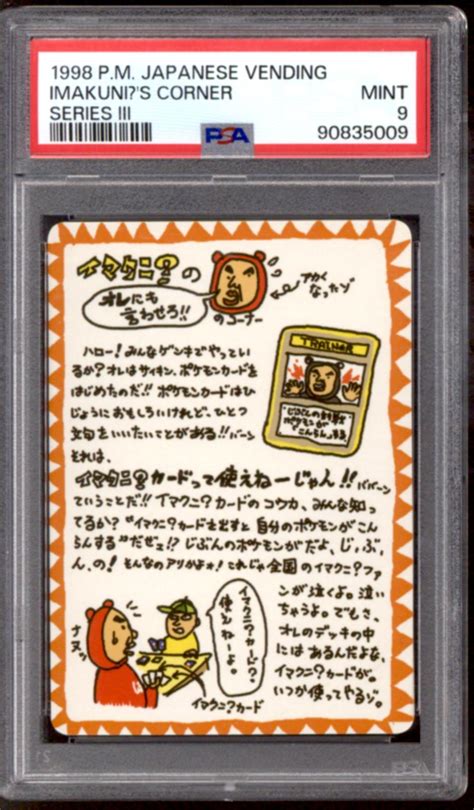 1998 P.M. JAPANESE VENDING
IMAKUNI?'S CORNER
MINT
SERIES III
9
PSA
90835009
イマクニ?の
オレにも
言わせろ!!
のコーナー
アカく
なったゾ
ハロー!みんなゲンキでやってい
るか?オレはサイキン、ポケモンカードを
はじめたのだ!!ポケモンカードはひ
じょうにおもしろいけれど、ひとつ
文句をいいたいことがある!!バーン
それは、
TRAINAR
じぶんの
ポケモンが
こんらん
イマクニ?カードって使えねーじゃん!!ババーン
ていうことだ!!イマクニ?カードのコウカ、みんな知っ
てるか?"イマクニ?カードを出すと自分のポケモンがこん
らんする"だぜェ!?じぶんのポケモンがだよ、じ,ぶ,
ん,の!そんなのアリかよォ!これじゃ全国のイマクニ?ファ
ンが泣くよ。泣い
ちゃうよ。でもさ、
オレのデッキの中
にはあるんだよな、
イマクニ?カードが。
いつか使ってやるゾ。
イマクニ?カード?
使えねーよ。
ナヌッ
イマクニ?カード